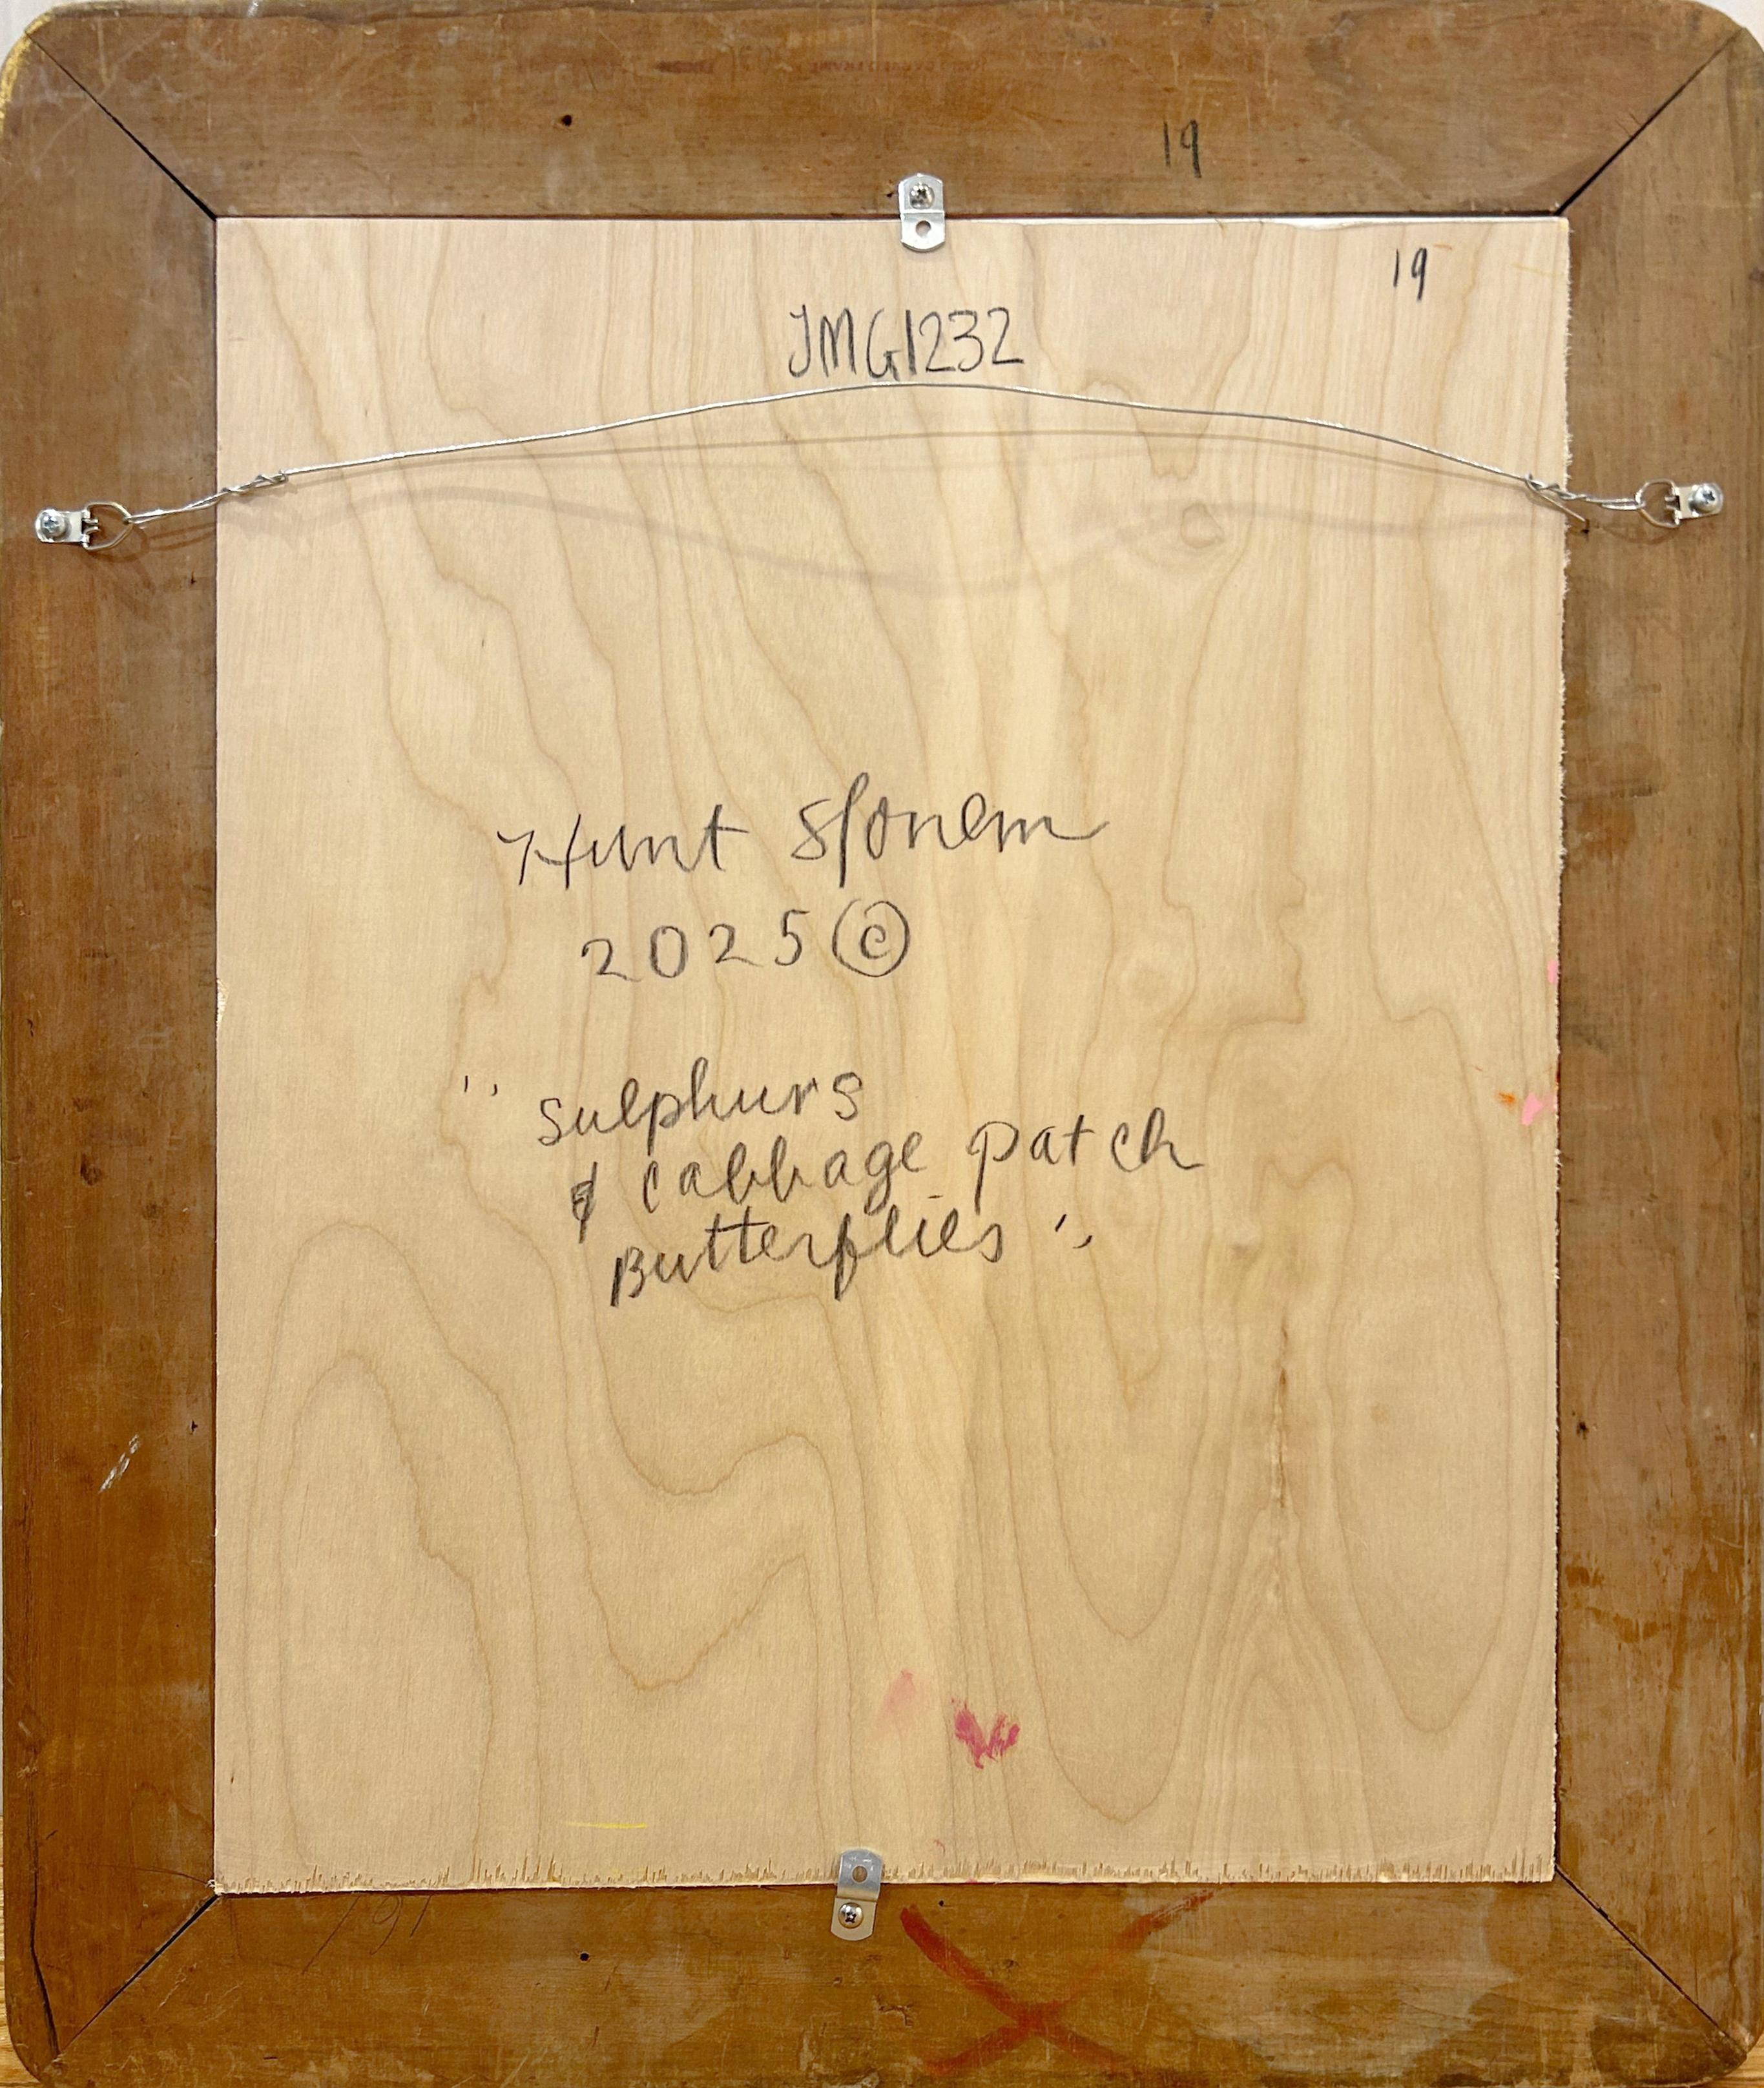 19
19
JMG1232
Hunt Slonem
2025©
"Sulphurs
& Cabbage Patch
Butterflies"